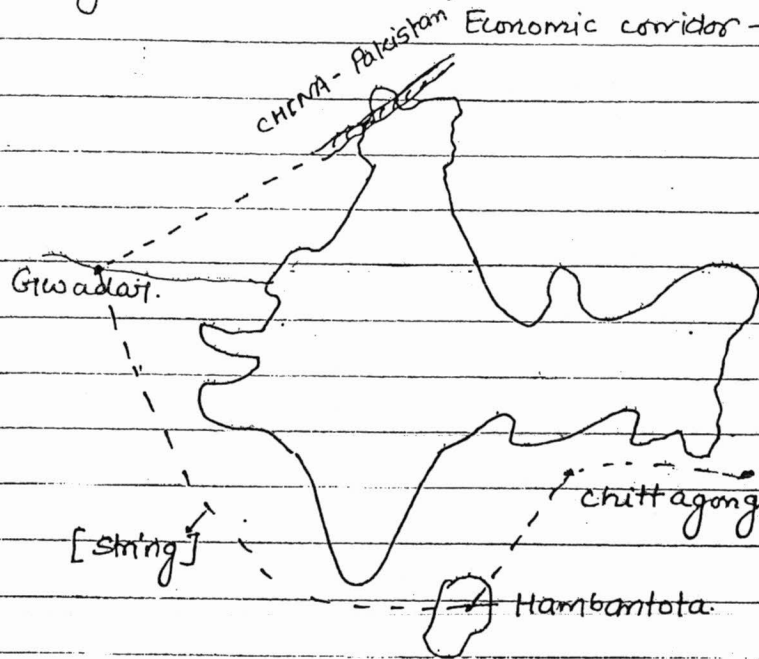 CHINA - Pakistan Economic corridor -
Gwadar.
chittagong
[string]
Hambantota.